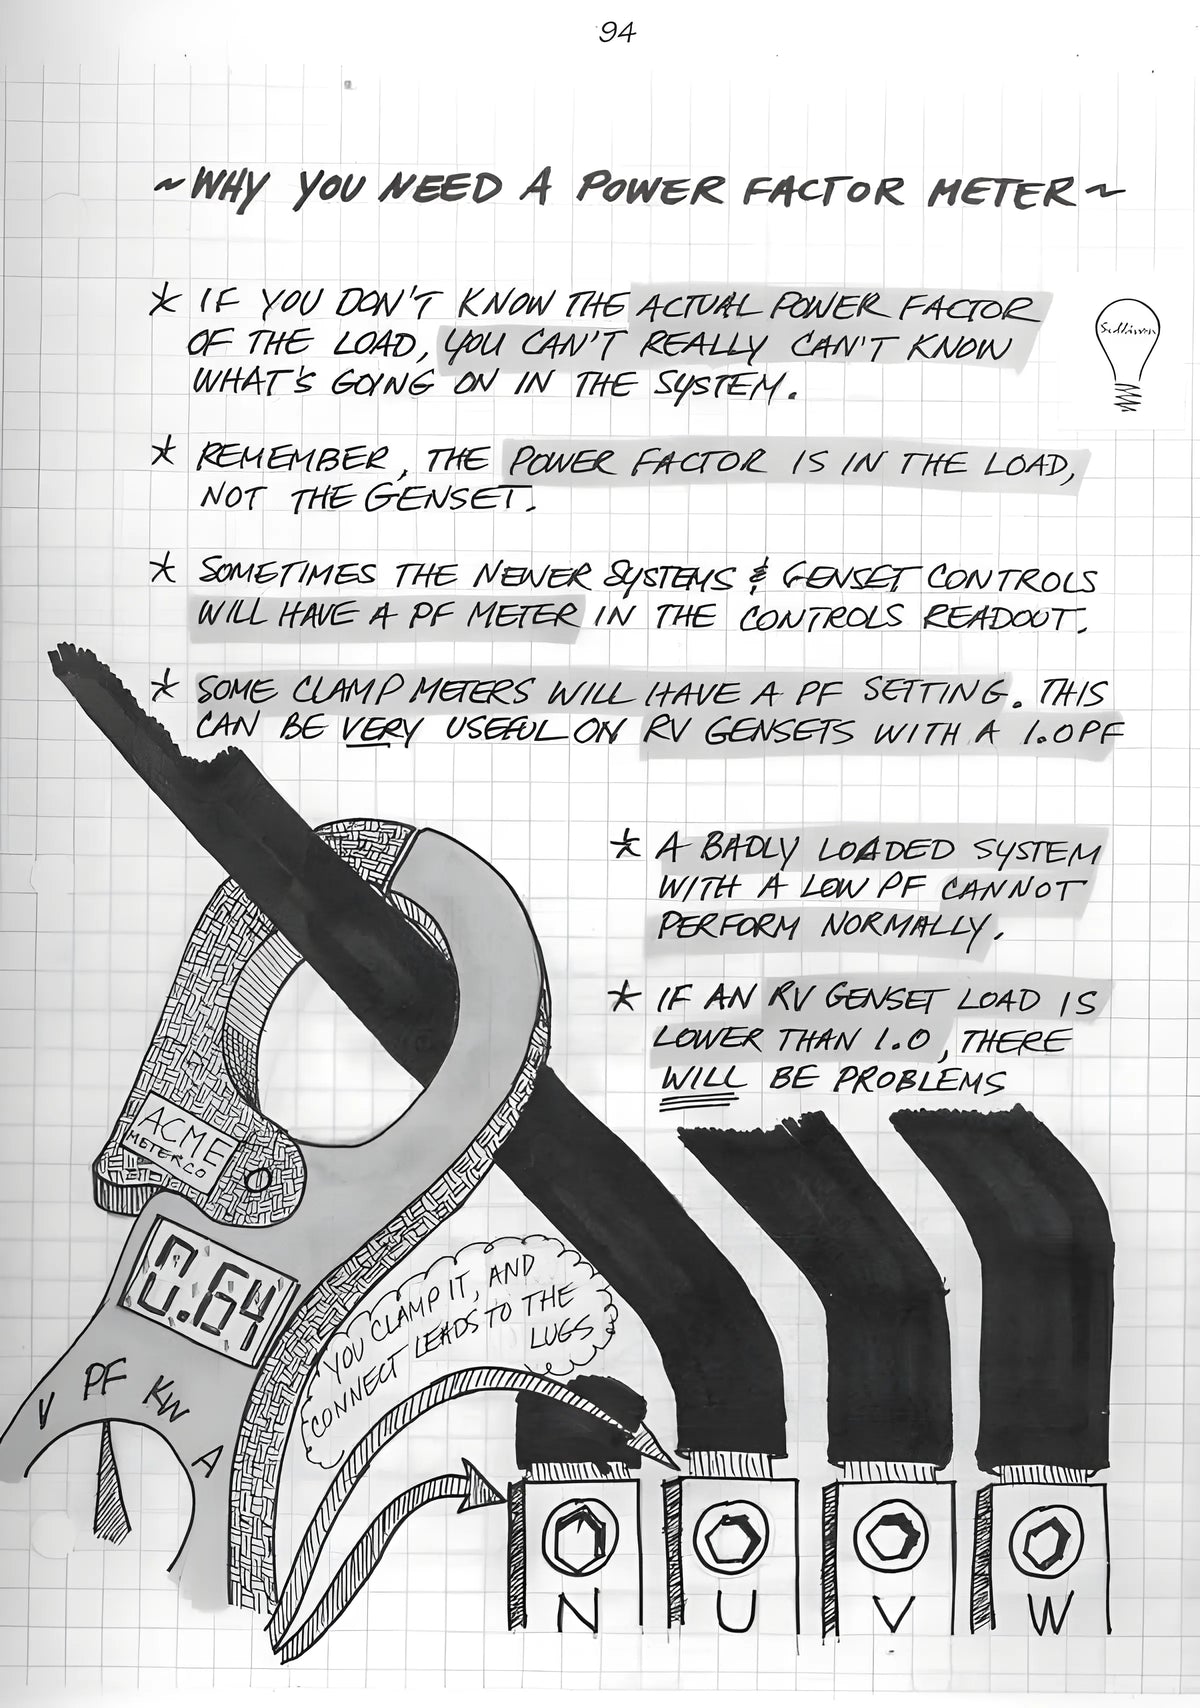 94
~WHY YOU NEED A POWER FACTOR METER~
* IF YOU DON'T KNOW THE ACTUAL POWER FACTOR
OF THE LOAD, YOU CAN'T REALLY CAN'T KNOW
WHAT'S GOING ON IN THE SYSTEM.
Sullivan
* REMEMBER, THE POWER FACTOR IS IN THE LOAD,
NOT THE GENSET.
* SOMETIMES THE NEWER SYSTEMS & GENSET CONTROLS
WILL HAVE A PF METER IN THE CONTROLS READOUT.
* SOME CLAMP METERS WILL HAVE A PF SETTING. THIS
CAN BE VERY USEFUL ON RV GENSETS WITH A 1.0PF
* A BADLY LOADED SYSTEM
WITH A LOW PF CANNOT
PERFORM NORMALLY.
* IF AN RV GENSET LOAD IS
LOWER THAN 1.0, THERE
WILL BE PROBLEMS
ACME
METER CO
0.64
V PF KW A
YOU CLAMP IT, AND
CONNECT LEADS TO THE
LUGS
N U V W